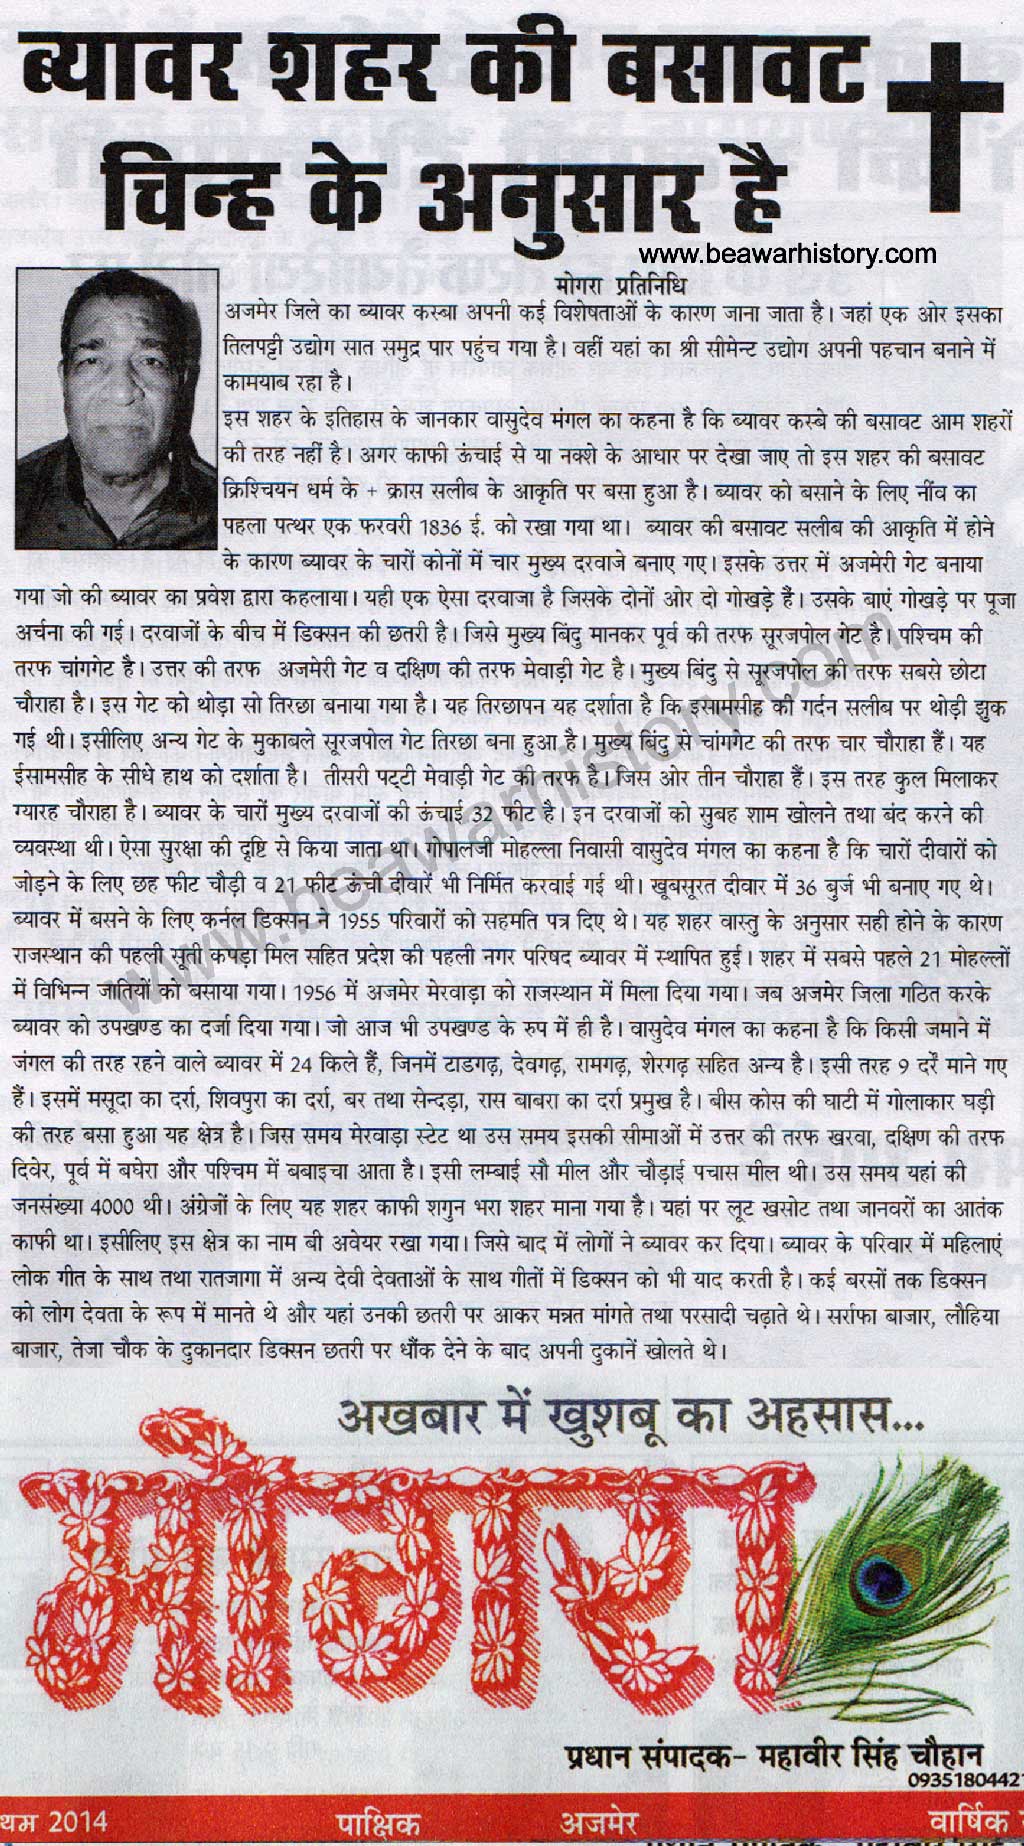 ब्यावर शहर की बसावट
चिन्ह के अनुसार है
www.beawarhistory.com
मोगरा प्रतिनिधि
अजमेर जिले का ब्यावर कस्बा अपनी कई विशेषताओं के कारण जाना जाता है। जहां एक ओर इसका
तिलपट्टी उद्योग सात समुद्र पार पहुंच गया है। वहीं यहां का श्री सीमेन्ट उद्योग अपनी पहचान बनाने में
कामयाब रहा है।
इस शहर के इतिहास के जानकार वासुदेव मंगल का कहना है कि ब्यावर कस्बे की बसावट आम शहरों
की तरह नहीं है। अगर काफी ऊंचाई से या नक्शे के आधार पर देखा जाए तो इस शहर की बसावट
क्रिश्चियन धर्म के + क्रास सलीब के आकृति पर बसा हुआ है। ब्यावर को बसाने के लिए नींव का
पहला पत्थर एक फरवरी 1836 ई. को रखा गया था। ब्यावर की बसावट सलीब की आकृति में होने
के कारण ब्यावर के चारों कोनों में चार मुख्य दरवाजे बनाए गए। इसके उत्तर में अजमेरी गेट बनाया
गया जो की ब्यावर का प्रवेश द्वारा कहलाया। यही एक ऐसा दरवाजा है जिसके दोनों ओर दो गोखड़े हैं। उसके बाएं गोखड़े पर पूजा
अर्चना की गई। दरवाजों के बीच में डिक्सन की छतरी है। जिसे मुख्य बिंदु मानकर पूर्व की तरफ सूरजपोल गेट है। पश्चिम की
तरफ चांगगेट है। उत्तर की तरफ अजमेरी गेट व दक्षिण की तरफ मेवाड़ी गेट है। मुख्य बिंदु से सूरजपोल की तरफ सबसे छोटा
चौराहा है। इस गेट को थोड़ा सो तिरछा बनाया गया है। यह तिरछापन यह दर्शाता है कि इसामसीह की गर्दन सलीब पर थोड़ी झुक
गई थी। इसीलिए अन्य गेट के मुकाबले सूरजपोल गेट तिरछा बना हुआ है। मुख्य बिंदु से चांगगेट की तरफ चार चौराहा हैं। यह
ईसामसीह के सीधे हाथ को दर्शाता है। तीसरी पट्टी मेवाड़ी गेट की तरफ है। जिस ओर तीन चौराहा हैं। इस तरह कुल मिलाकर
ग्यारह चौराहा है। ब्यावर के चारों मुख्य दरवाजों की ऊंचाई 32 फीट है। इन दरवाजों को सुबह शाम खोलने तथा बंद करने की
व्यवस्था थी। ऐसा सुरक्षा की दृष्टि से किया जाता था। गोपालजी मोहल्ला निवासी वासुदेव मंगल का कहना है कि चारों दीवारों को
जोड़ने के लिए छह फीट चौड़ी व 21 फीट ऊंची दीवारें भी निर्मित करवाई गई थी। खूबसूरत दीवार में 36 बुर्ज भी बनाए गए थे।
ब्यावर में बसने के लिए कर्नल डिक्सन ने 1955 परिवारों को सहमति पत्र दिए थे। यह शहर वास्तु के अनुसार सही होने के कारण
राजस्थान की पहली सूती कपड़ा मिल सहित प्रदेश की पहली नगर परिषद ब्यावर में स्थापित हुई। शहर में सबसे पहले 21 मोहल्लों
में विभिन्न जातियों को बसाया गया। 1956 में अजमेर मेरवाड़ा को राजस्थान में मिला दिया गया। जब अजमेर जिला गठित करके
ब्यावर को उपखण्ड का दर्जा दिया गया। जो आज भी उपखण्ड के रुप में ही है। वासुदेव मंगल का कहना है कि किसी जमाने में
जंगल की तरह रहने वाले ब्यावर में 24 किले हैं, जिनमें टाडगढ़, देवगढ़, रामगढ़, शेरगढ़ सहित अन्य है। इसी तरह 9 दर्रे माने गए
हैं। इसमें मसूदा का दर्रा, शिवपुरा का दर्रा, बर तथा सेन्दड़ा, रास बाबरा का दर्रा प्रमुख है। बीस कोस की घाटी में गोलाकार घड़ी
की तरह बसा हुआ यह क्षेत्र है। जिस समय मेरवाड़ा स्टेट था उस समय इसकी सीमाओं में उत्तर की तरफ खरवा, दक्षिण की तरफ
दिवेर, पूर्व में बघेरा और पश्चिम में बबाइचा आता है। इसी लम्बाई सौ मील और चौड़ाई पचास मील थी। उस समय यहां की
जनसंख्या 4000 थी। अंग्रेजों के लिए यह शहर काफी शगुन भरा शहर माना गया है। यहां पर लूट खसोट तथा जानवरों का आतंक
काफी था। इसीलिए इस क्षेत्र का नाम बी अवेयर रखा गया। जिसे बाद में लोगों ने ब्यावर कर दिया। ब्यावर के परिवार में महिलाएं
लोक गीत के साथ तथा रातजागा में अन्य देवी देवताओं के साथ गीतों में डिक्सन को भी याद करती है। कई बरसों तक डिक्सन
को लोग देवता के रूप में मानते थे और यहां उनकी छतरी पर आकर मन्नत मांगते तथा परसादी चढ़ाते थे। सर्राफा बाजार, लौहिया
बाजार, तेजा चौक के दुकानदार डिक्सन छतरी पर धौंक देने के बाद अपनी दुकानें खोलते थे।
www.beawarhistory.com
अखबार में खुशबू का अहसास...
मोगरा
प्रधान संपादक- महावीर सिंह चौहान
0935180442
थम 2014 पाक्षिक अजमेर वार्षिक